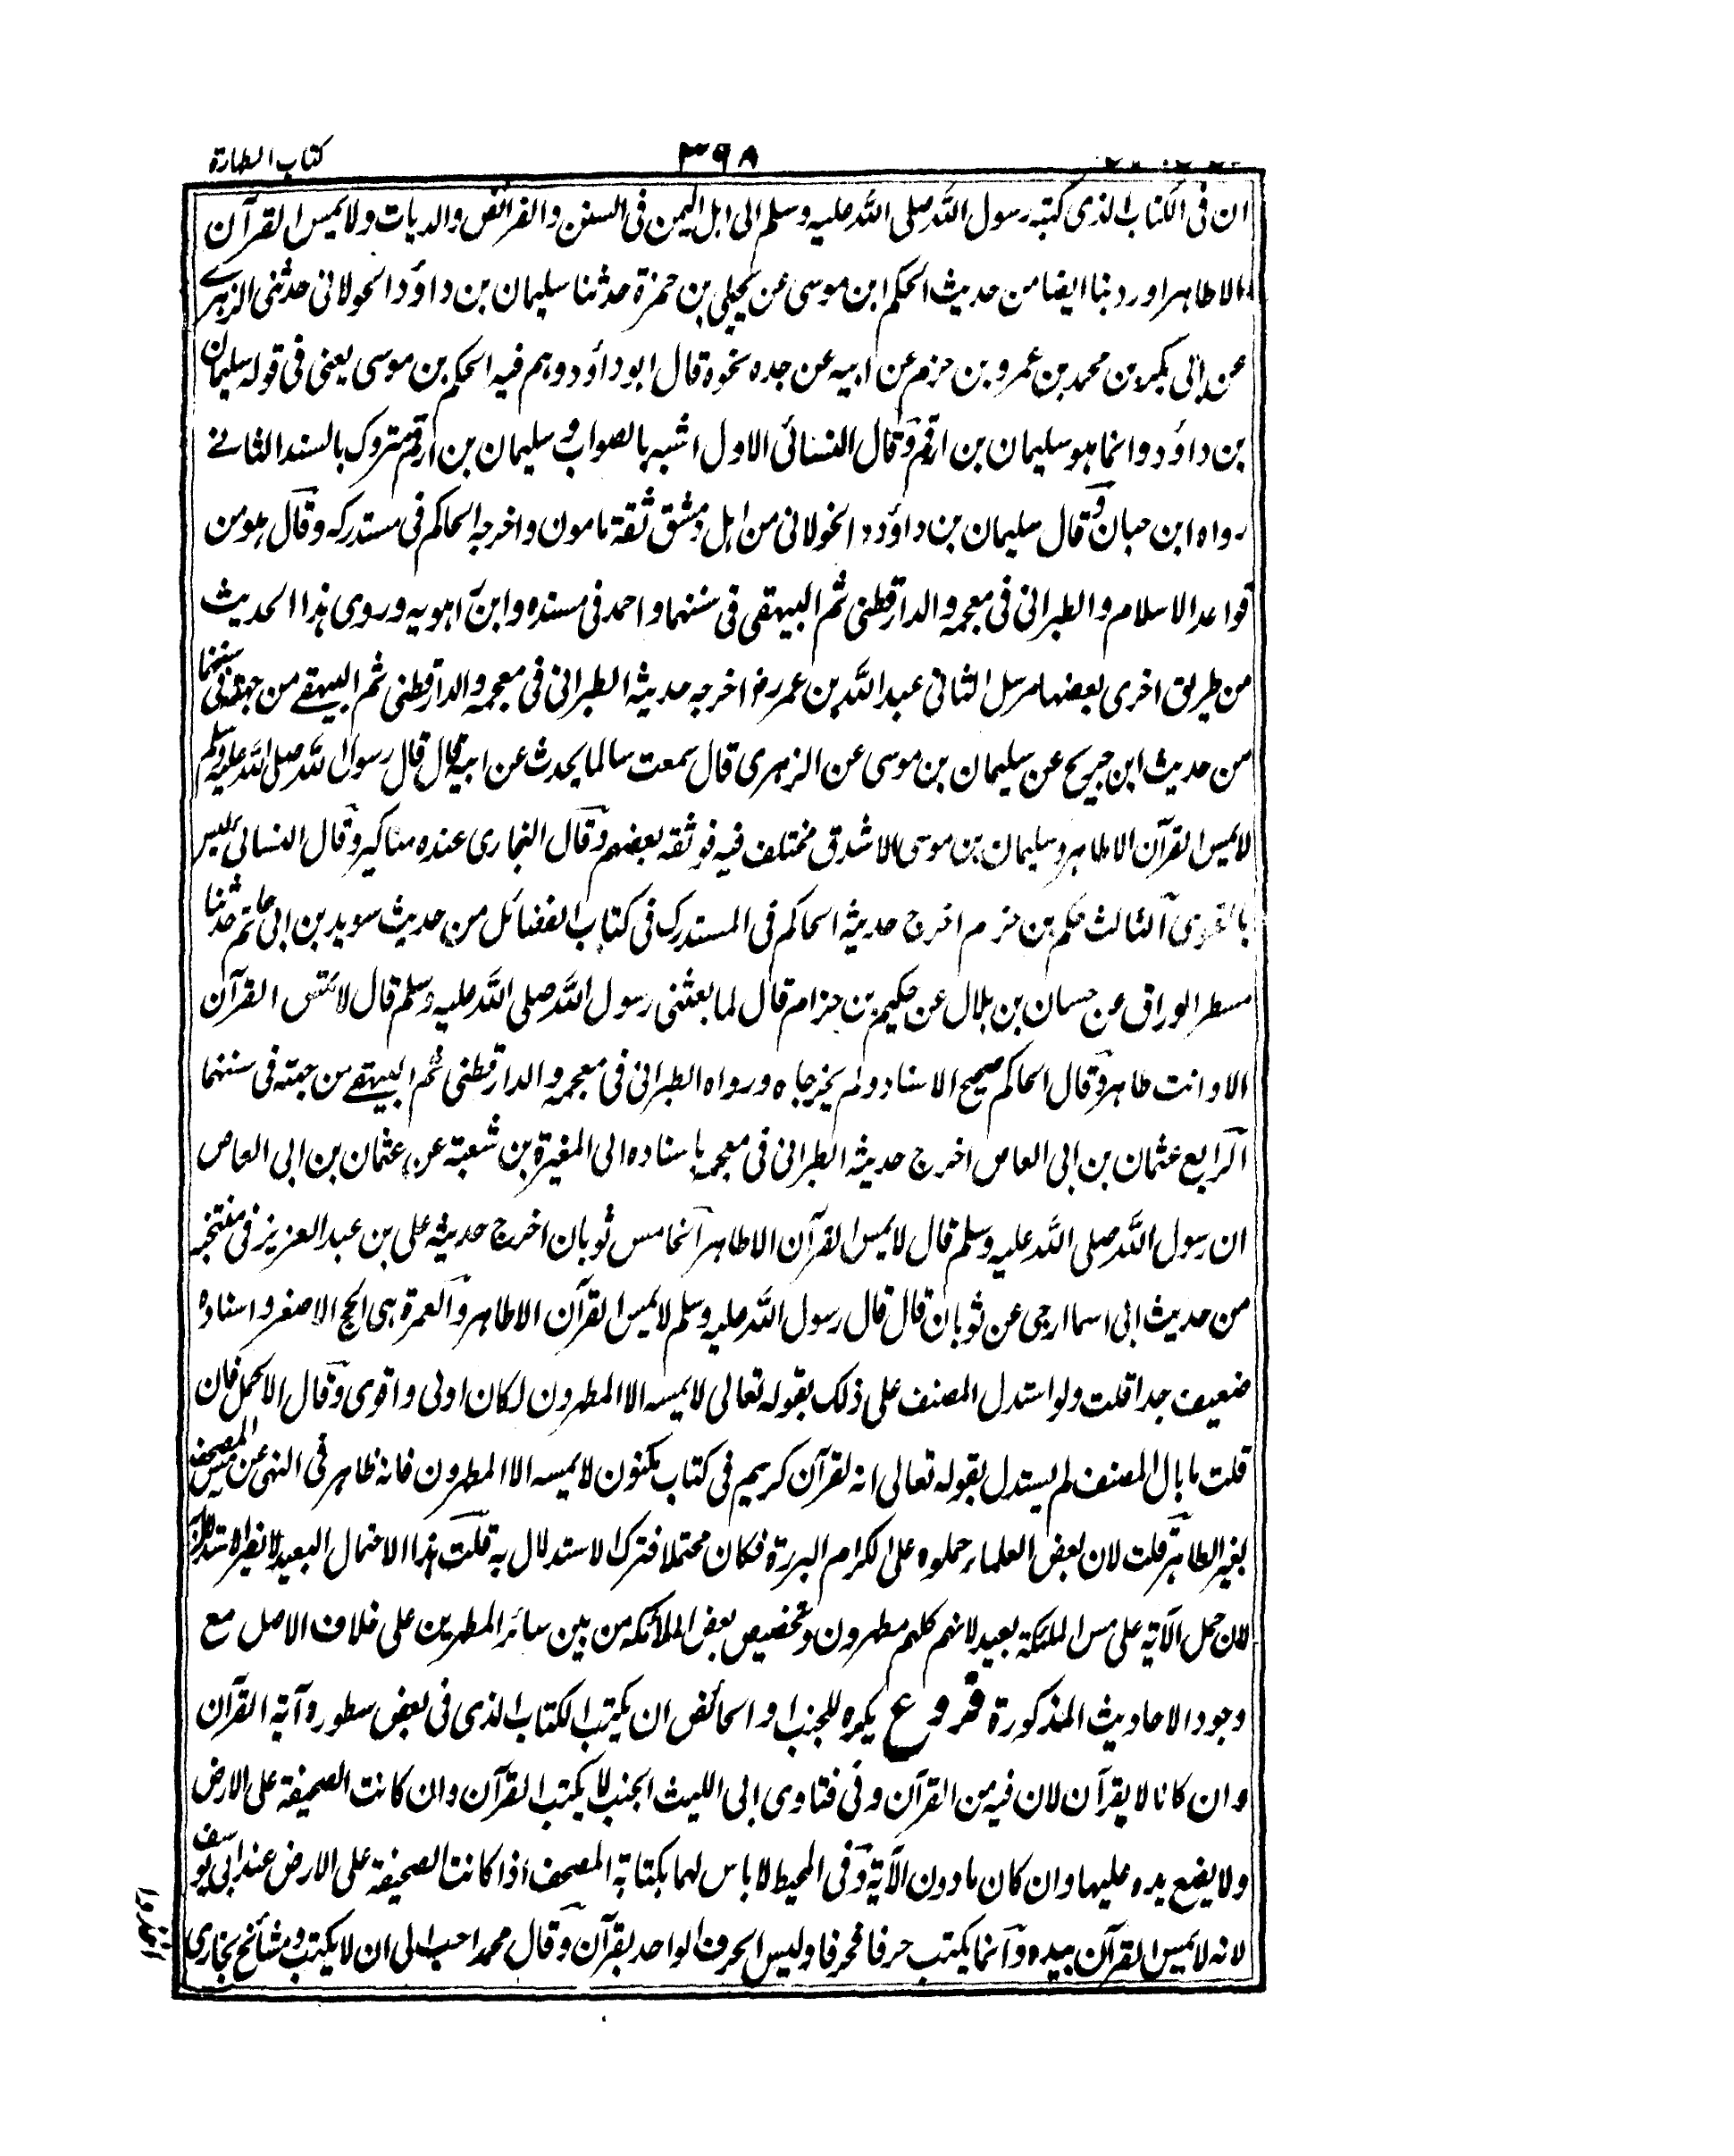 كتاب الطهارة
٣٩٨
ان فى الكتاب الذى كتبه رسول الله صلى الله عليه وسلم الى اهل اليمن فى السنن والفرائض والديات ولا يمس القرآن
الا طاهر اوردناه ايضا من حديث الحكم ابن موسى عن يحيى بن حمزة حدثنا سليمان بن داؤد الخولانى حدثنى الزهرى
عن ابى بكر بن محمد بن عمرو بن حزم عن ابيه عن جده نحوه قال ابو داؤد وهم فيه الحكم بن موسى يعنى فى قوله سليمان
بن داؤد وانما هو سليمان بن ارقم وقال النسائى الاول اشبه بالصواب وسليمان بن ارقم متروك بالسند الثانى
رواه ابن حبان وقال سليمان بن داؤد الخولانى من اهل دمشق ثقة مامون واخرجه الحاكم فى مستدركه وقال هو من
قواعد الاسلام والطبرانى فى معجمه والدارقطنى ثم البيهقى فى سننهما واحمد فى مسنده وابن راهويه وروى هذا الحديث
من طريق اخرى بعضها مرسل الثانى عبد الله بن عمر رض اخرجه حديثه الطبرانى فى معجمه والدارقطنى ثم البيهقى من جهته فى سننهما
من حديث ابن جريح عن سليمان بن موسى عن الزهرى قال سمعت سالما يحدث عن ابيه قال قال رسول الله صلى الله عليه وسلم
لا يمس القرآن الا طاهر وسليمان بن موسى الاشدق مختلف فيه فوثقه بعضهم وقال البخارى عنده مناكير وقال النسائى ليس
بالقوى الثالث حكيم بن حزم اخرج حديثه الحاكم فى المستدرك فى كتاب الفضائل من حديث سويد بن ابى حاتم حدثنا
مطر الوراق عن حسان بن بلال عن حكيم بن حزام قال لما بعثنى رسول الله صلى الله عليه وسلم قال لا تمس القرآن
الا وانت طاهر وقال الحاكم صحيح الاسناد ولم يخرجاه ورواه الطبرانى فى معجمه والدارقطنى ثم البيهقى من جهته فى سننهما
الرابع عثمان بن ابى العاص اخرج حديثه الطبرانى فى معجمه باسناده الى المغيرة بن شعبة عن عثمان بن ابى العاص
ان رسول الله صلى الله عليه وسلم قال لا يمس القرآن الا طاهر الخامس ثوبان اخرج حديثه على بن عبد العزيز فى منتخبه
من حديث ابى اسما ارجى عن ثوبان قال قال رسول الله عليه وسلم لا يمس القرآن الا طاهر والعمرة هى الحج الاصغر واسناده
ضعيف جدا قلت ولو استدل المصنف على ذلك بقوله تعالى لا يمسه الا المطهرون لكان اولى واقوى وقال الاكمل فان
قلت ما بال المصنف لم يستدل بقوله تعالى انه لقرآن كريم فى كتاب مكنون لا يمسه الا المطهرون فانه ظاهر فى النهى عن مس المصحف
لغير الطاهر قلت لان بعض العلماء حملوه على الكرام البررة فكان محتملا فترك الاستدلال به قلت هذا الاحتمال البعيد لا يضر الاستدلال
لان حمل الآية على مس الملئكة بعيد لانهم كلهم مطهرون وتخصيص بعض الملائكه من بين سائر المطهرين على خلاف الاصل مع
وجود الاحاديث المذكورة فروع يكره للجنب او الحائض ان يكتب الكتاب الذى فى بعض سطوره آية القرآن
وان كانا لا يقرآن لان فيه من القرآن وفى فتاوى ابى الليث الجنب لا يكتب القرآن وان كانت الصحيفة على الارض
ولا يضع يده عليها وان كان ما دون الآية وفى المحيط لا باس لهما بكتابة المصحف اذا كانت الصحيفة على الارض عند ابى يوسف
لانه لا يمس القرآن بيده وانما يكتب حرفا فحرفا وليس الحرف الواحد بقرآن وقال محمد احب الى ان لا يكتب ومشائخ بخارى